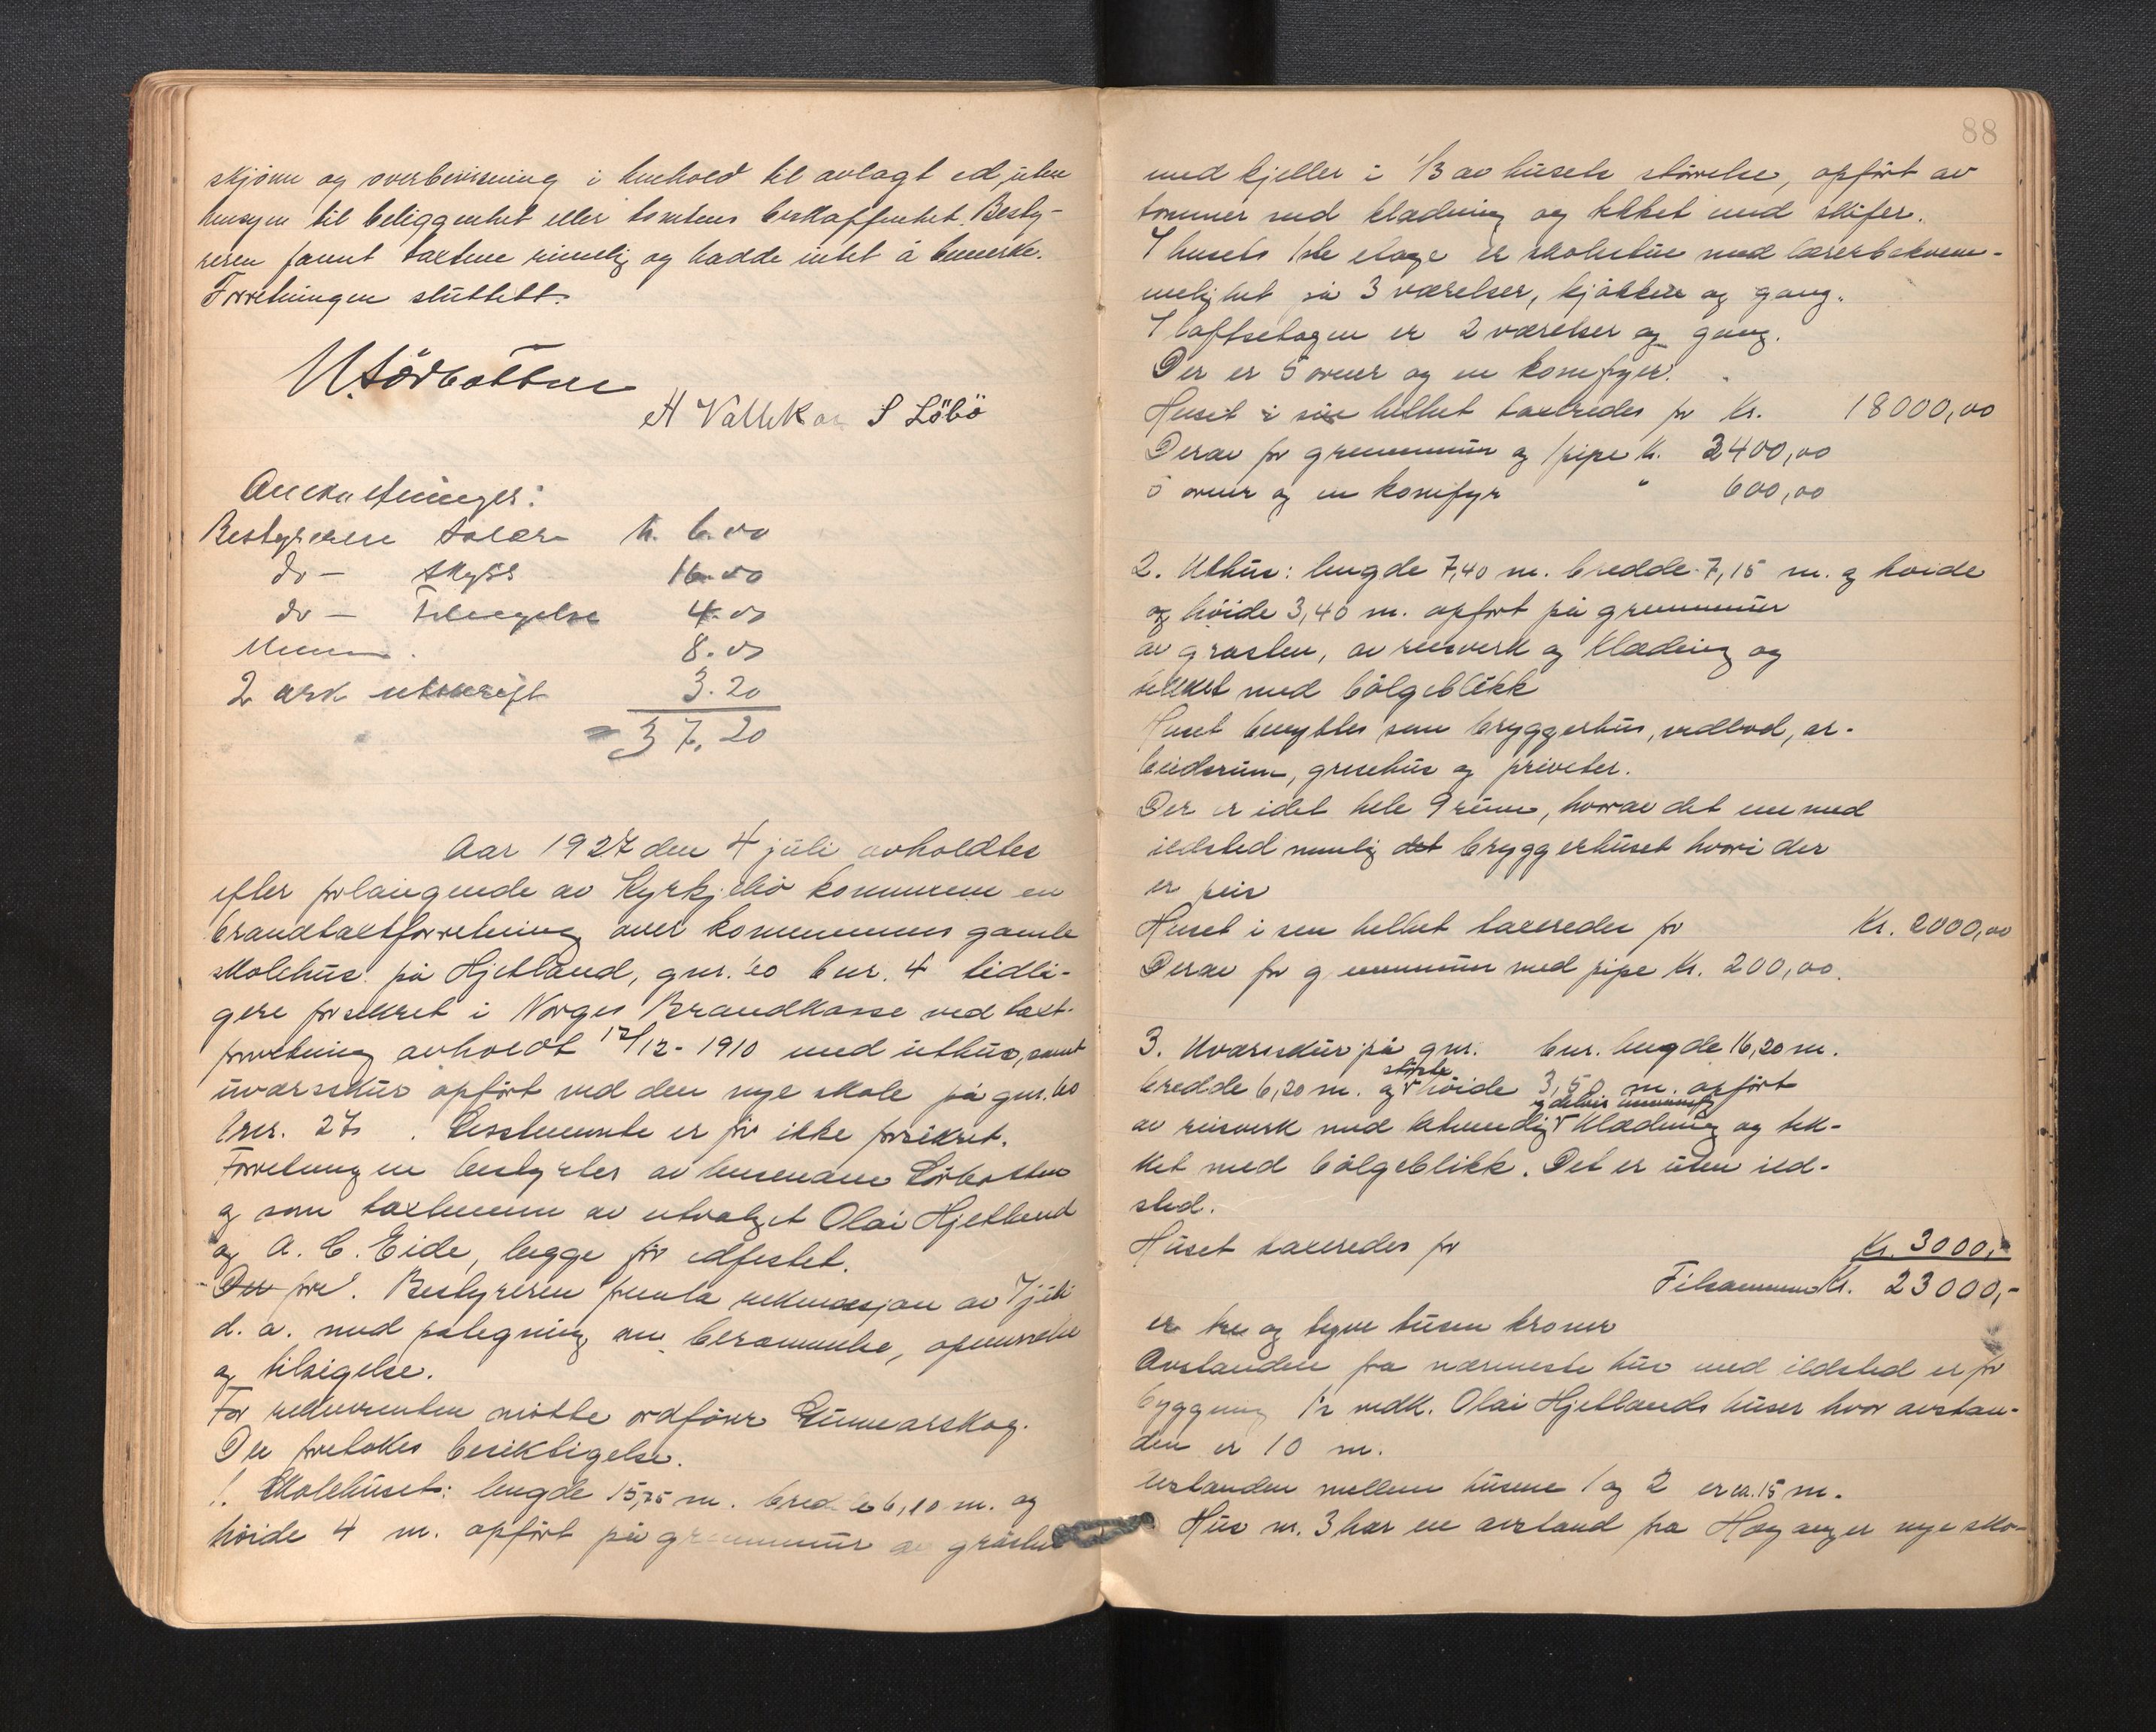 skjønn og overbevisning i henhold til avlagt ed, uten
hensyn til beliggenhet eller tomtens beskaffenhet. Besty-
reren fannt taxtene rimelig og hadde intet å bemerke.
Forretningen sluttet.
N. Sörbotten
A Vallek S Löbö
Anskutninger:
Bestyrerens salær k. 6.00
do — skyss 16.00
do — 4.00
Menn 8.00
2 ark utskrift 3.20
= 37.20
Aar 1927 den 4 juli avholdtes
efter forlangende av Kyrkjebø kommune en
brandtaxtforretning over kommunens gamle
skolehus på Hjetland, gnr. 60 bnr. 4 tidli-
gere forsikret i Norges Brandkasse ved taxt-
forretning avholdt 12/12-1910 med uthus, samt
uværsskur opført ved den nye skole på gnr. 60
bnr. 27. Sisstnevnte er før ikke forsikret.
Forretningen bestyrtes av lensmann Sörbotten
og som taxtmenn av utvalget Olai Hjetland
og A. C. Eide, begge før edfestet.
Der fore. Bestyreren fremla rekvisisjon av 1 juli
d. a. med påtegning om berammelse, opnevnelse
og tilsigelse.
For rekvirenten møtte ordfører Gunnarskog.
Der foretokes besiktigelse.
1. Skolehuset: lengde 15,75 m. bredde 6,10 m. og
høide 4 m. opført på grunnmur av gråsten
88
med kjeller i 1/3 av husets størrelse, opført av
tømmer med klædning og tekket med skifer.
I husets 1ste etage er skolestue med lærerbekvem-
melighet på 3 værelser, kjøkken og gang.
I loftsetagen er 2 værelser og gang.
Der er 5 ovner og en komfyr.
Huset i sin helhet taxeredes for Kr. 18000,00
Derav for grunnmur og 1 pipe kr. 2400,00
5 ovner og en komfyr " 600,00
2. Uthus: lengde 7,40 m. bredde 7,15 m. og høide
og høide 3,40 m. opført på grunnmur
av gråsten, av reisverk og klædning og
tekket med bølgeblikk
Huset benyttes som bryggerhus, vedbod, ar-
beidsrum, grisehus og priveter.
Der er idet hele 9 rum, hvorav det ene med
ildsted nemlig det bryggerhuset hvori der
er peis
Huset i sin helhet taxeredes for Kr. 2000,00
Derav for grunnmur med pipe Kr. 200,00.
3. Uværsskur på gnr. bnr. lengde 16,20 m.
bredde 6,20 m. og største høide 3,50 m. opført
av reisverk med utvendig og delvis innvendig klædning og tek-
ket med bølgeblikk. Det er uten ild-
sted.
Huset taxeredes for Kr. 3000,-
Tilsammen Kr. 23000,-
er tre og tyve tusen kroner
Avstanden fra nærmeste hus med ildsted er for
bygging 1/2 vedk. Olai Hjetlands huser hvor avstan-
den er 10 m.
Avstanden mellem husene 1 og 2 er ca. 15 m.
Hus nr. 3 har en avstand fra Høyanger nye sko-